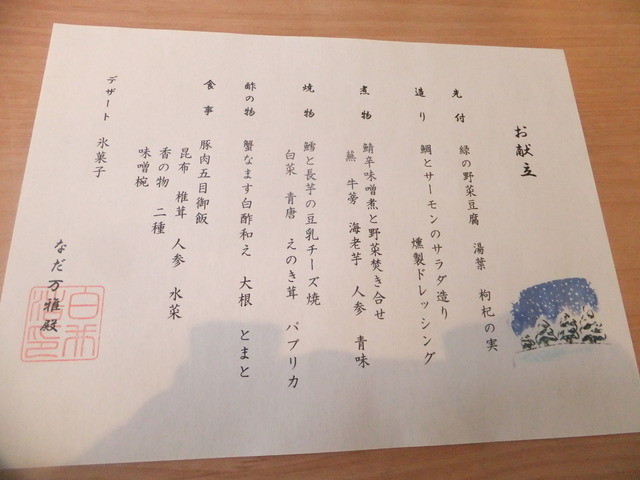 お献立
先付 緑の野菜豆腐 湯葉 枸杞の実
造り 鯛とサーモンのサラダ造り
燻製ドレッシング
煮物 鯖辛味噌煮と野菜焚き合せ
蕪 牛蒡 海老芋 人参 青味
焼物 鱈と長芋の豆乳チーズ焼
白菜 青唐 えのき茸 パプリカ
酢の物 蟹なます白酢和え 大根 とまと
食事 豚肉五目御飯
昆布 椎茸 人参 水菜
香の物 二種
味噌椀
デザート 氷菓子
なだ万雅殿